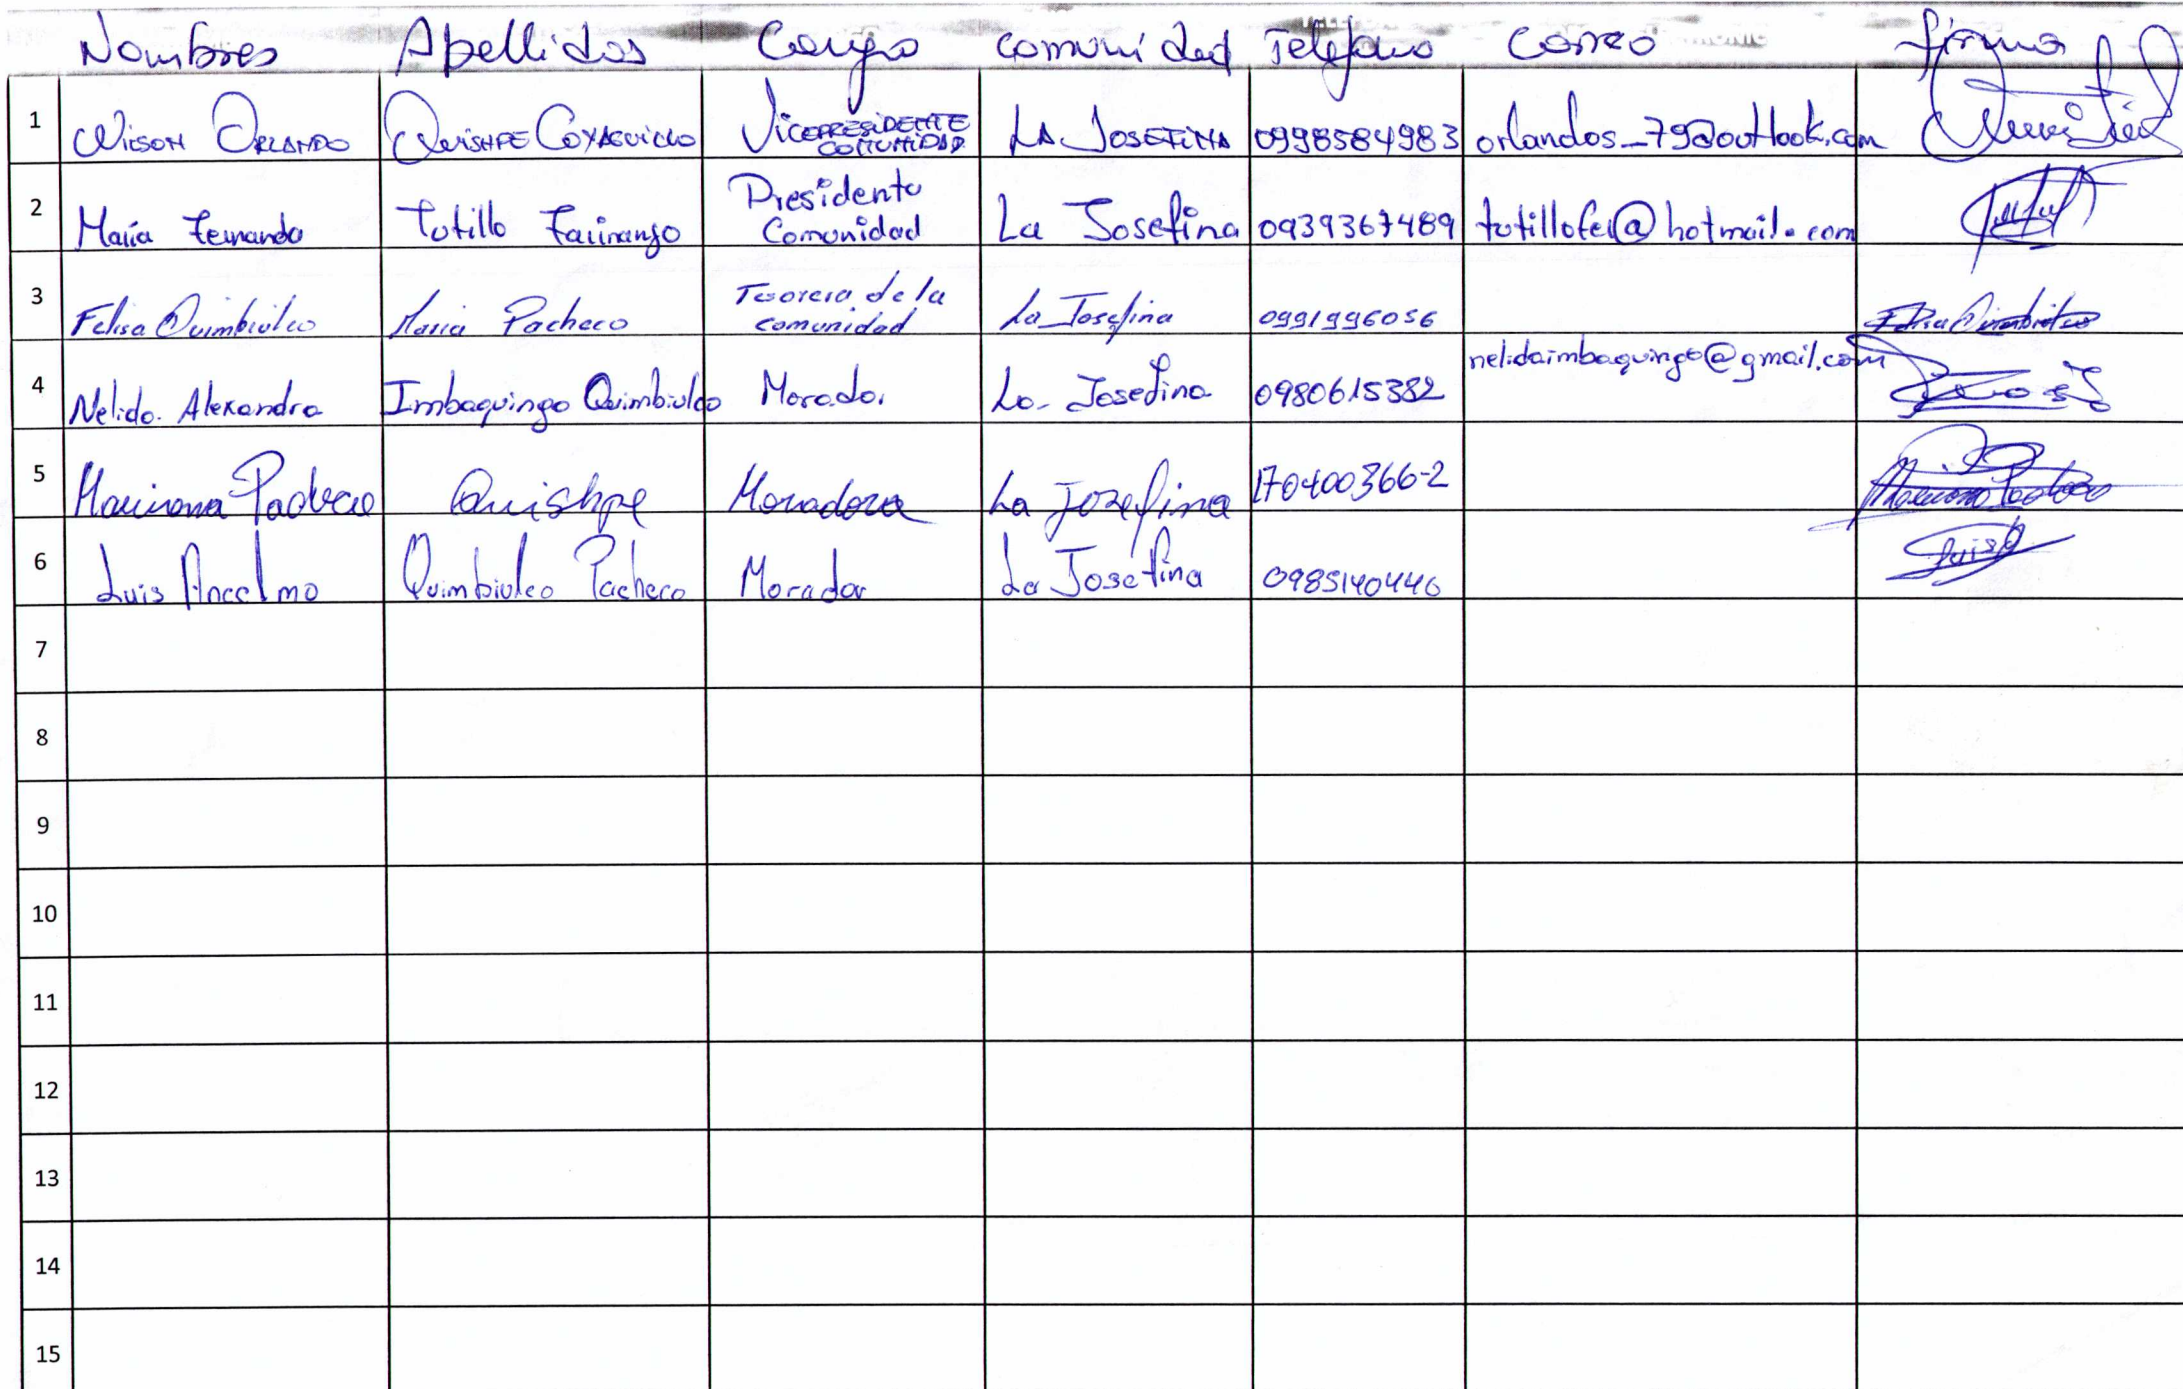 Nombres Apellidos Cargo comunidad Telefono correo firma
1 Wilson ORLANDO QUISHPE COYAGUILLO VICEPRESIDENTE COMUNIDAD LA JOSEFINA 0998584983 orlandos_79@outlook.com
2 María Fernanda Tutillo Farinango Presidenta Comunidad La Josefina 0939367489 tutillofer@hotmail.com
3 Felisa Quimbiulco Maria Pacheco Tesorera de la comunidad La Josefina 0991996056 Felisa Quimbiulco
4 Nelida Alexandra Imbaquingo Quimbiulco Morador La Josefina 0980615382 nelidaimbaquingo@gmail.com
5 Mariana Pacheco Quishpe Moradora La Jozefina 170400366-2 Mariana Pacheco
6 Luis Ancelmo Quimbiulco Pacheco Morador La Josefina 0985140446 Luis Q
7
8
9
10
11
12
13
14
15